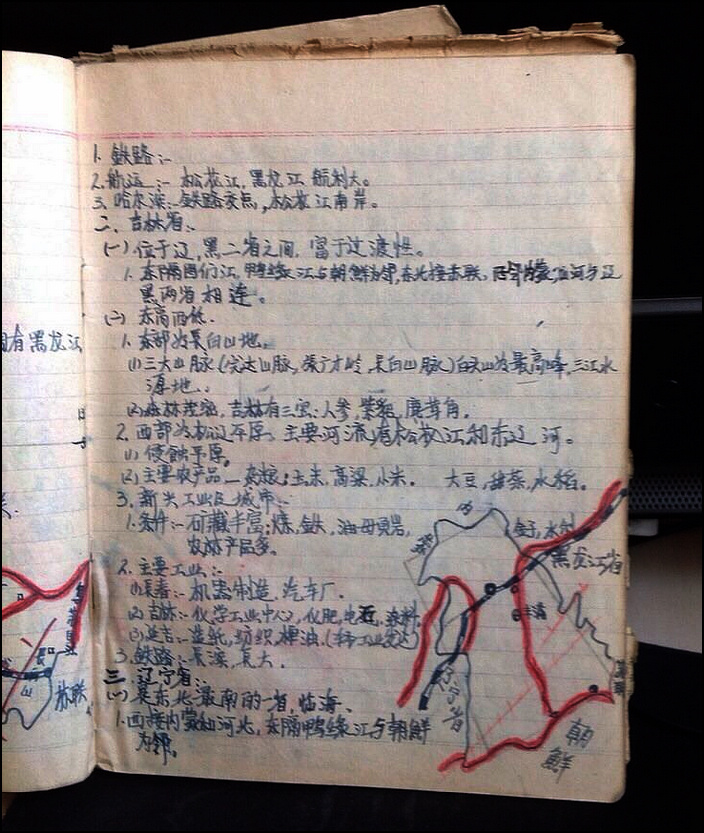 1. 铁路:-
2. 航运:- 松花江, 黑龙江 航利大。
3. 哈尔滨:- 铁路交点, 松花江南岸。
二、吉林省:-
(一) 位于辽, 黑二省之间, 富于过渡性。
1. 东隔图们江, 鸭绿江与朝鲜为邻, 东北接苏联, 西邻内蒙, 与辽
黑两省相连。
(二) 东高西低.
1. 东部为长白山地.
(1) 三大山脉(完达山脉, 张广才岭, 长白山脉) 白头山为最高峰, 三江水
源地.
(2) 森林茂密, 吉林有三宝: 人参, 紫貂, 鹿茸角.
2. 西部为松辽平原, 主要河流有松花江和东辽河。
(1) 侵蚀平原.
(2) 主要农产品—杂粮: 玉米, 高粱, 小米. 大豆, 甜菜, 水稻。
3. 新兴工业及城市:-
1. 条件:- 矿藏丰富: 煤, 铁, 油母页岩,
农林产品多。
2. 主要工业:-
(1) 长春:- 机器制造, 汽车厂.
(2) 吉林:- 化学工业中心, 化肥, 电石, 染料.
(3) 延吉:- 造纸, 纺织, 榨油.(轻工业发达)
3. 铁路:- 长滨, 长大.
三 辽宁省:-
(一) 是东北最南的一省, 临海.
1. 西接内蒙和河北, 东隔鸭绿江与朝鲜
为邻。
内
蒙
黑龙江省
辽宁省
朝
鲜
有黑龙江
苏联